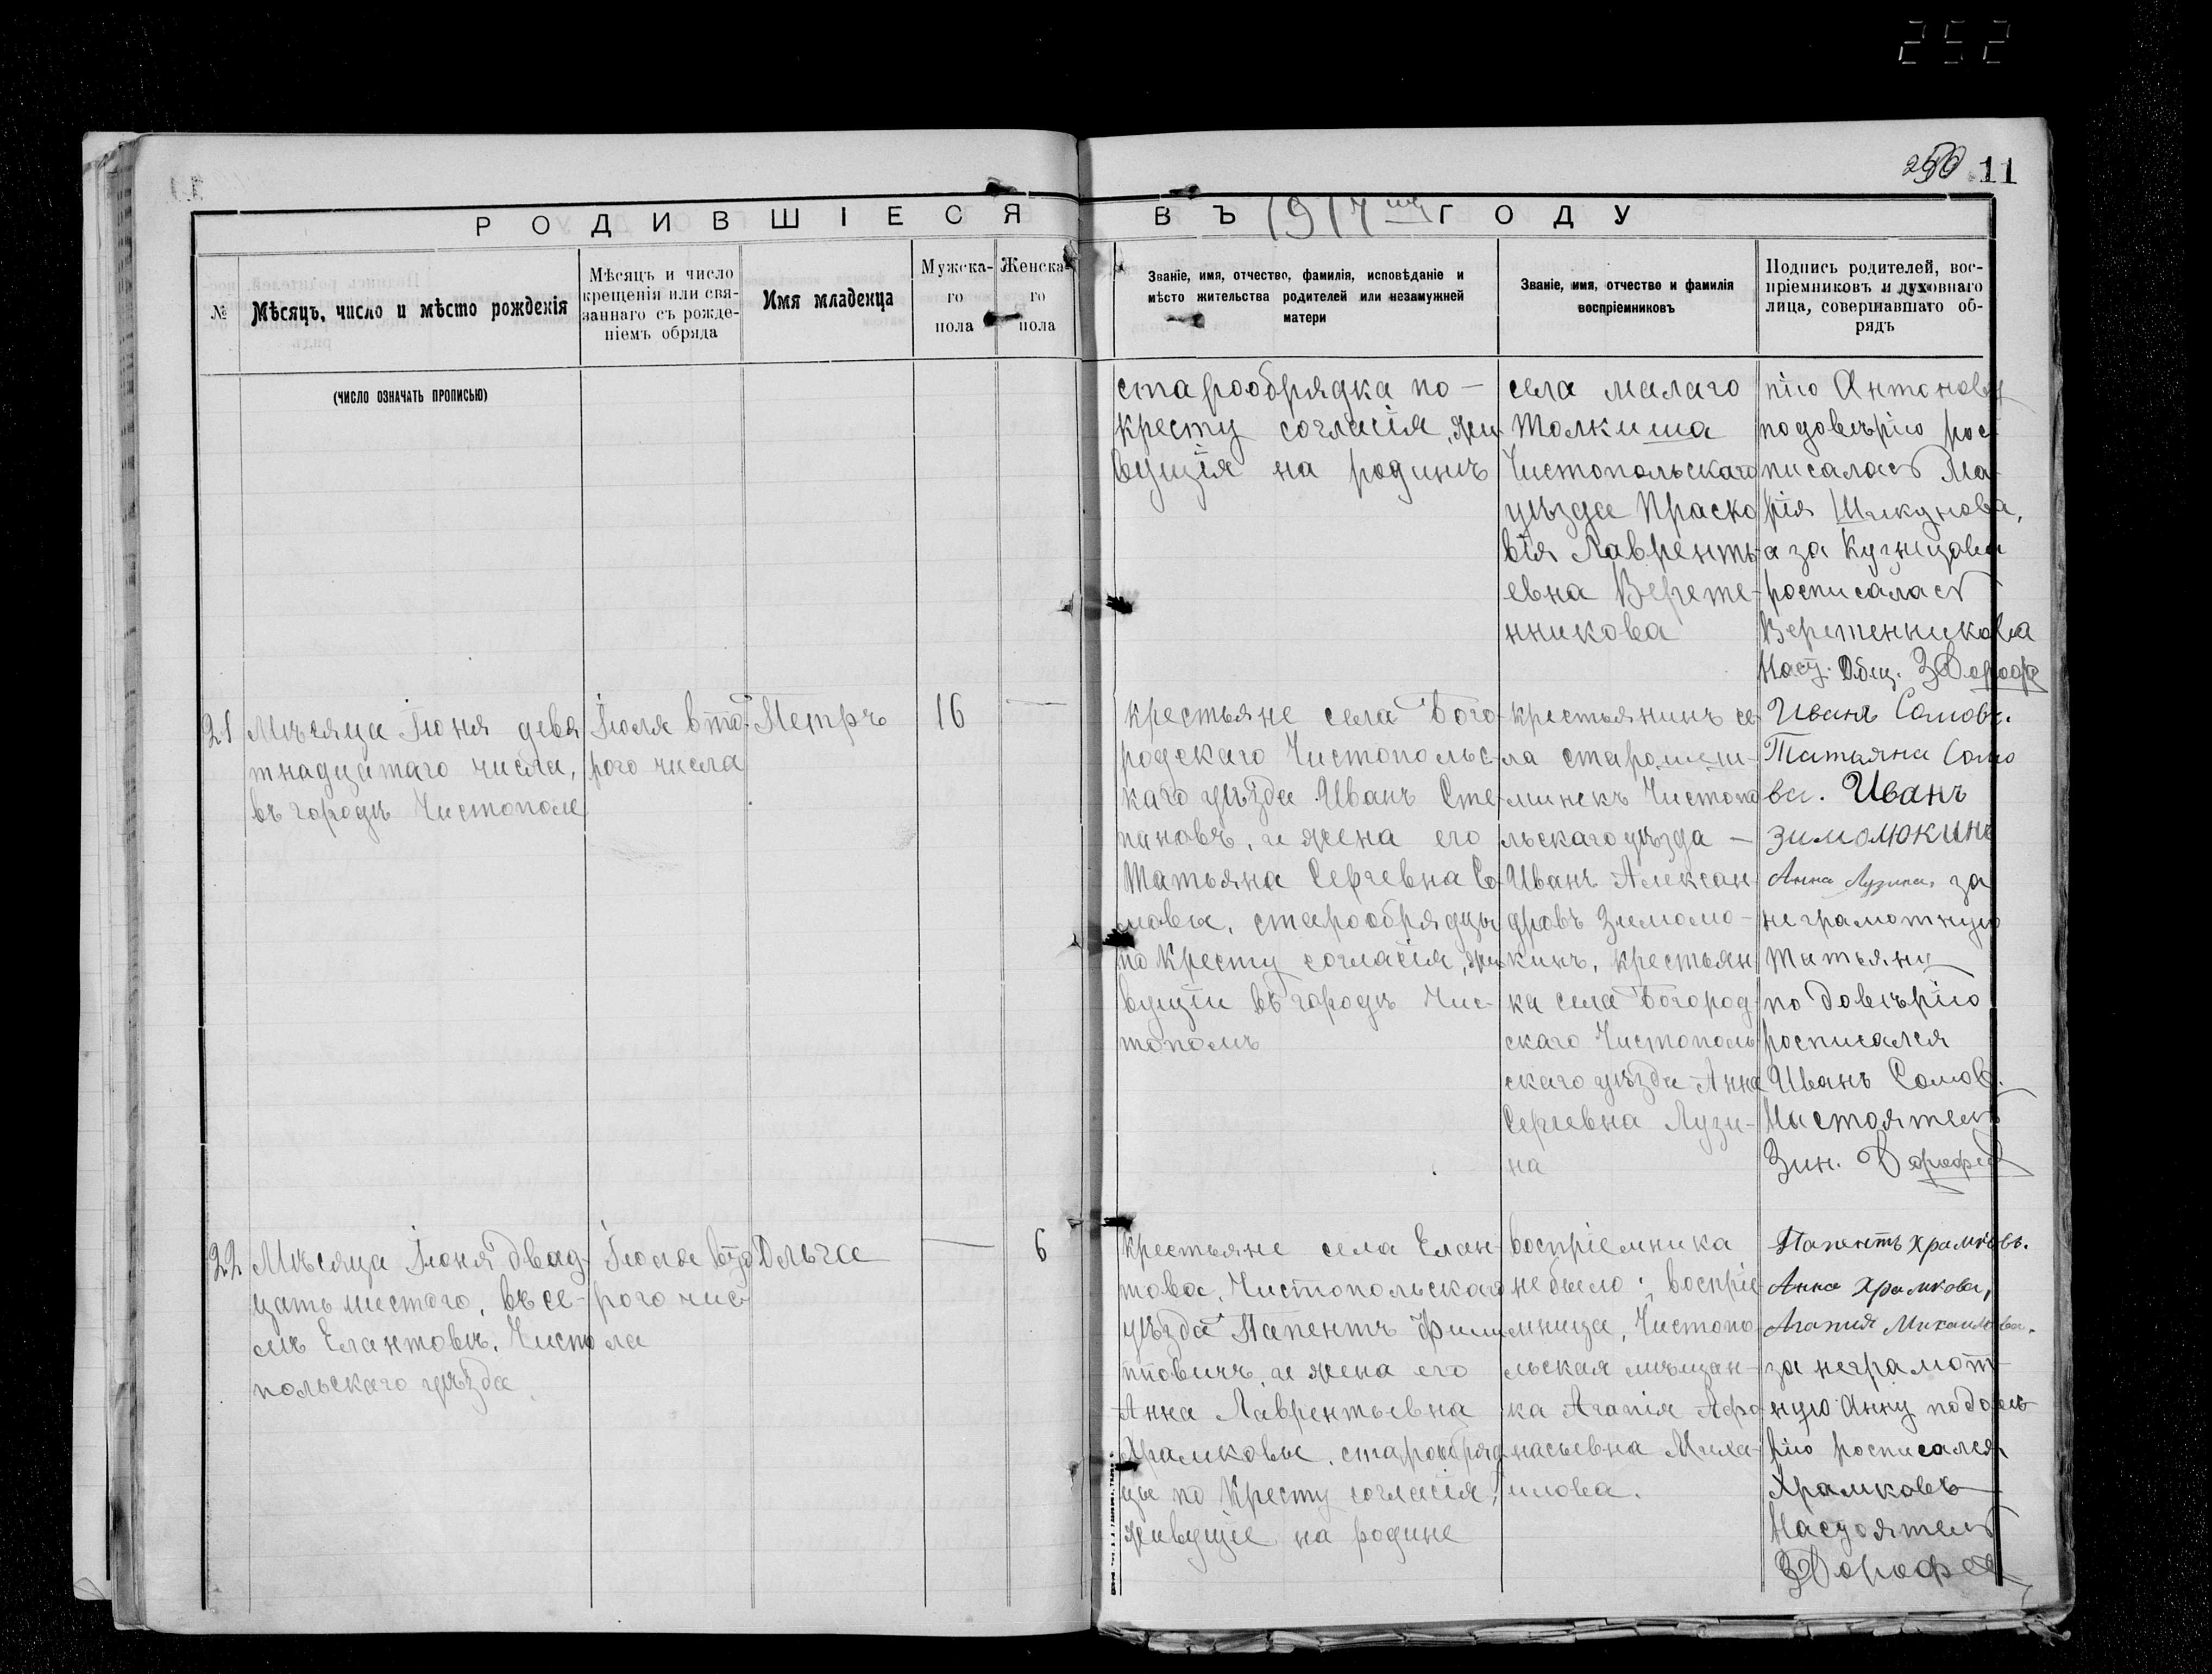 252
250 11
РОДИВШІЕСЯ ВЪ 1917 ГОДУ
№
Мѣсяцъ, число и мѣсто рожденія
Мѣсяцъ и число
крещенія или свя-
заннаго съ рожде-
ніемъ обряда
Имя младенца
Мужска-
го
пола
Женска-
го
пола
Званіе, имя, отчество, фамилія, исповѣданіе и
мѣсто жительства родителей или незамужней
матери
Званіе, имя, отчество и фамилія
воспріемниковъ
Подпись родителей, вос-
пріемниковъ и духовнаго
лица, совершавшаго об-
рядъ
(ЧИСЛО ОЗНАЧАТЬ ПРОПИСЬЮ)
старообрядка по-
кресту согласія, жи
вущія на родинѣ
села малаго
Толкиша
Чистопольскаго
уѣзда Праско
вія Лавренть-
евна Веретен-
нникова
пію Антонову
по довѣрію рос
писалась Ма-
рія Шикунова,
а за Кузнецова
росписалась
Веретенникова
Наст. Общ. З Дороф
21
Мѣсяца Іюня девя
тнадцатаго числа,
въ городѣ Чистополѣ
Іюля вто-
рого числа
Петръ
16
—
крестьяне села Бого-
родскаго Чистопольс-
каго уѣзда Иванъ Сте-
пановъ, и жена его
Татьяна Сергевна Со
мовы, старообрядцы
по кресту согласія, жи
вущіи въ городѣ Чис-
тополѣ
крестьянинъ се-
ла староиши-
минскъ Чистопо
льскаго уѣзда —
Иванъ Алексан-
дровъ Зимолю-
кинъ, крестьян
ка села Богород-
скаго Чистополь
скаго уѣзда Анна
Сергевна Лузи-
на
Иванъ Сомовъ.
Татьяна Сомо
ва. Иванъ
зимолюкинъ
Анна Лузина, за
неграмотную
Татьяну
по довѣрію
росписался
Иванъ Сомовъ.
Настоятель
Зин. Дорофеев
22
Мѣсяца Іюня двад-
цать шестого, въ се-
лѣ Елантовѣ, Чисто
польскаго уѣзда
Іюля вто
рого чис-
ла
Ольга
—
6
крестьяне села Елан-
това, Чистопольскаго
уѣзда Папентъ Фили
пповичъ, и жена его
Анна Лаврентьевна
Храмковы, старообряд
цы по кресту согласія,
живущіе на родине
воспріемника
не было; воспріе-
мница, Чистопо-
льская мѣщан-
ка Агапія Афо
насьевна Миха-
илова.
Папентъ Храмковъ.
Анна Храмкова,
Агапия Михаилова.
за неграмот-
ную Анну по довѣ-
рію росписался
Храмковъ
Настоятель
З Дорофеев